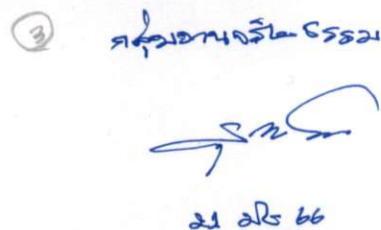 3
กลุ่มงานจริยธรรม
21 มิย 66